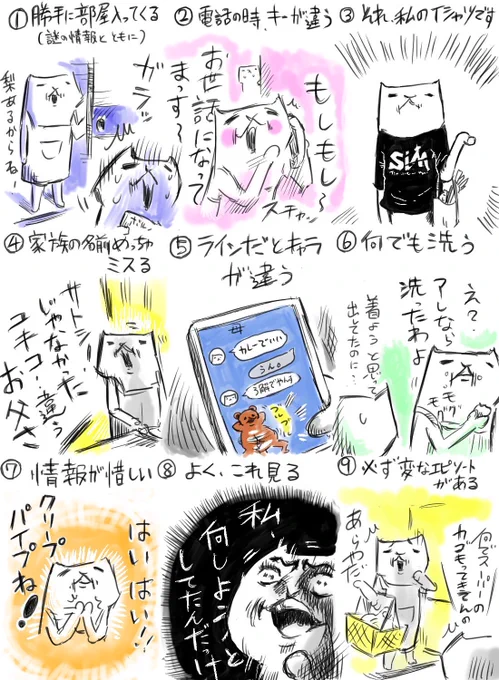 ①勝手に部屋入ってくる
(謎の情報とともに)
ガラッ
梨あるからねー
②電話の時、キーが違う
もしもし〜
お世話になって
まっす〜
スチャッ
③それ、私のTシャツです
SiM
④家族の名前めっちゃ
ミスる
サトシ
じゃなかった
ユキコ!違う
お父さ
⑤ラインだとキャラ
が違う
カレーでいい
うん。
3解でやんす
プルプル
⑥何でも洗う
え?
アレなら
洗ったわよ
モグ
モグ
着ようと思って
出してたのに…
⑦情報が惜しい
はいはい!!
クリープ
パイプね!
⑧よく、これ見る
私、
何しよう、と
してたんだっけ
⑨必ず変なエピソード
がある
何でスーパーの
カゴもってきてんの
あらやだ